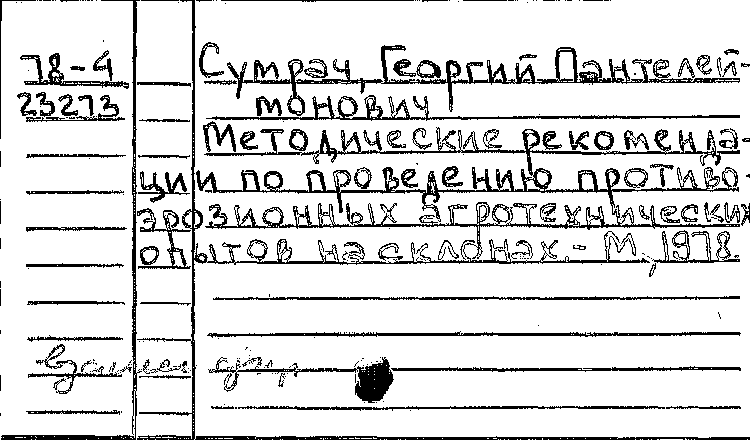 78-4 Сумрач, Георгий Пантелей-
23273 монович
Методические рекоменда-
ции по проведению противо-
эрозионных агротехнических
опытов на склонах. - М., 1978.
взамен